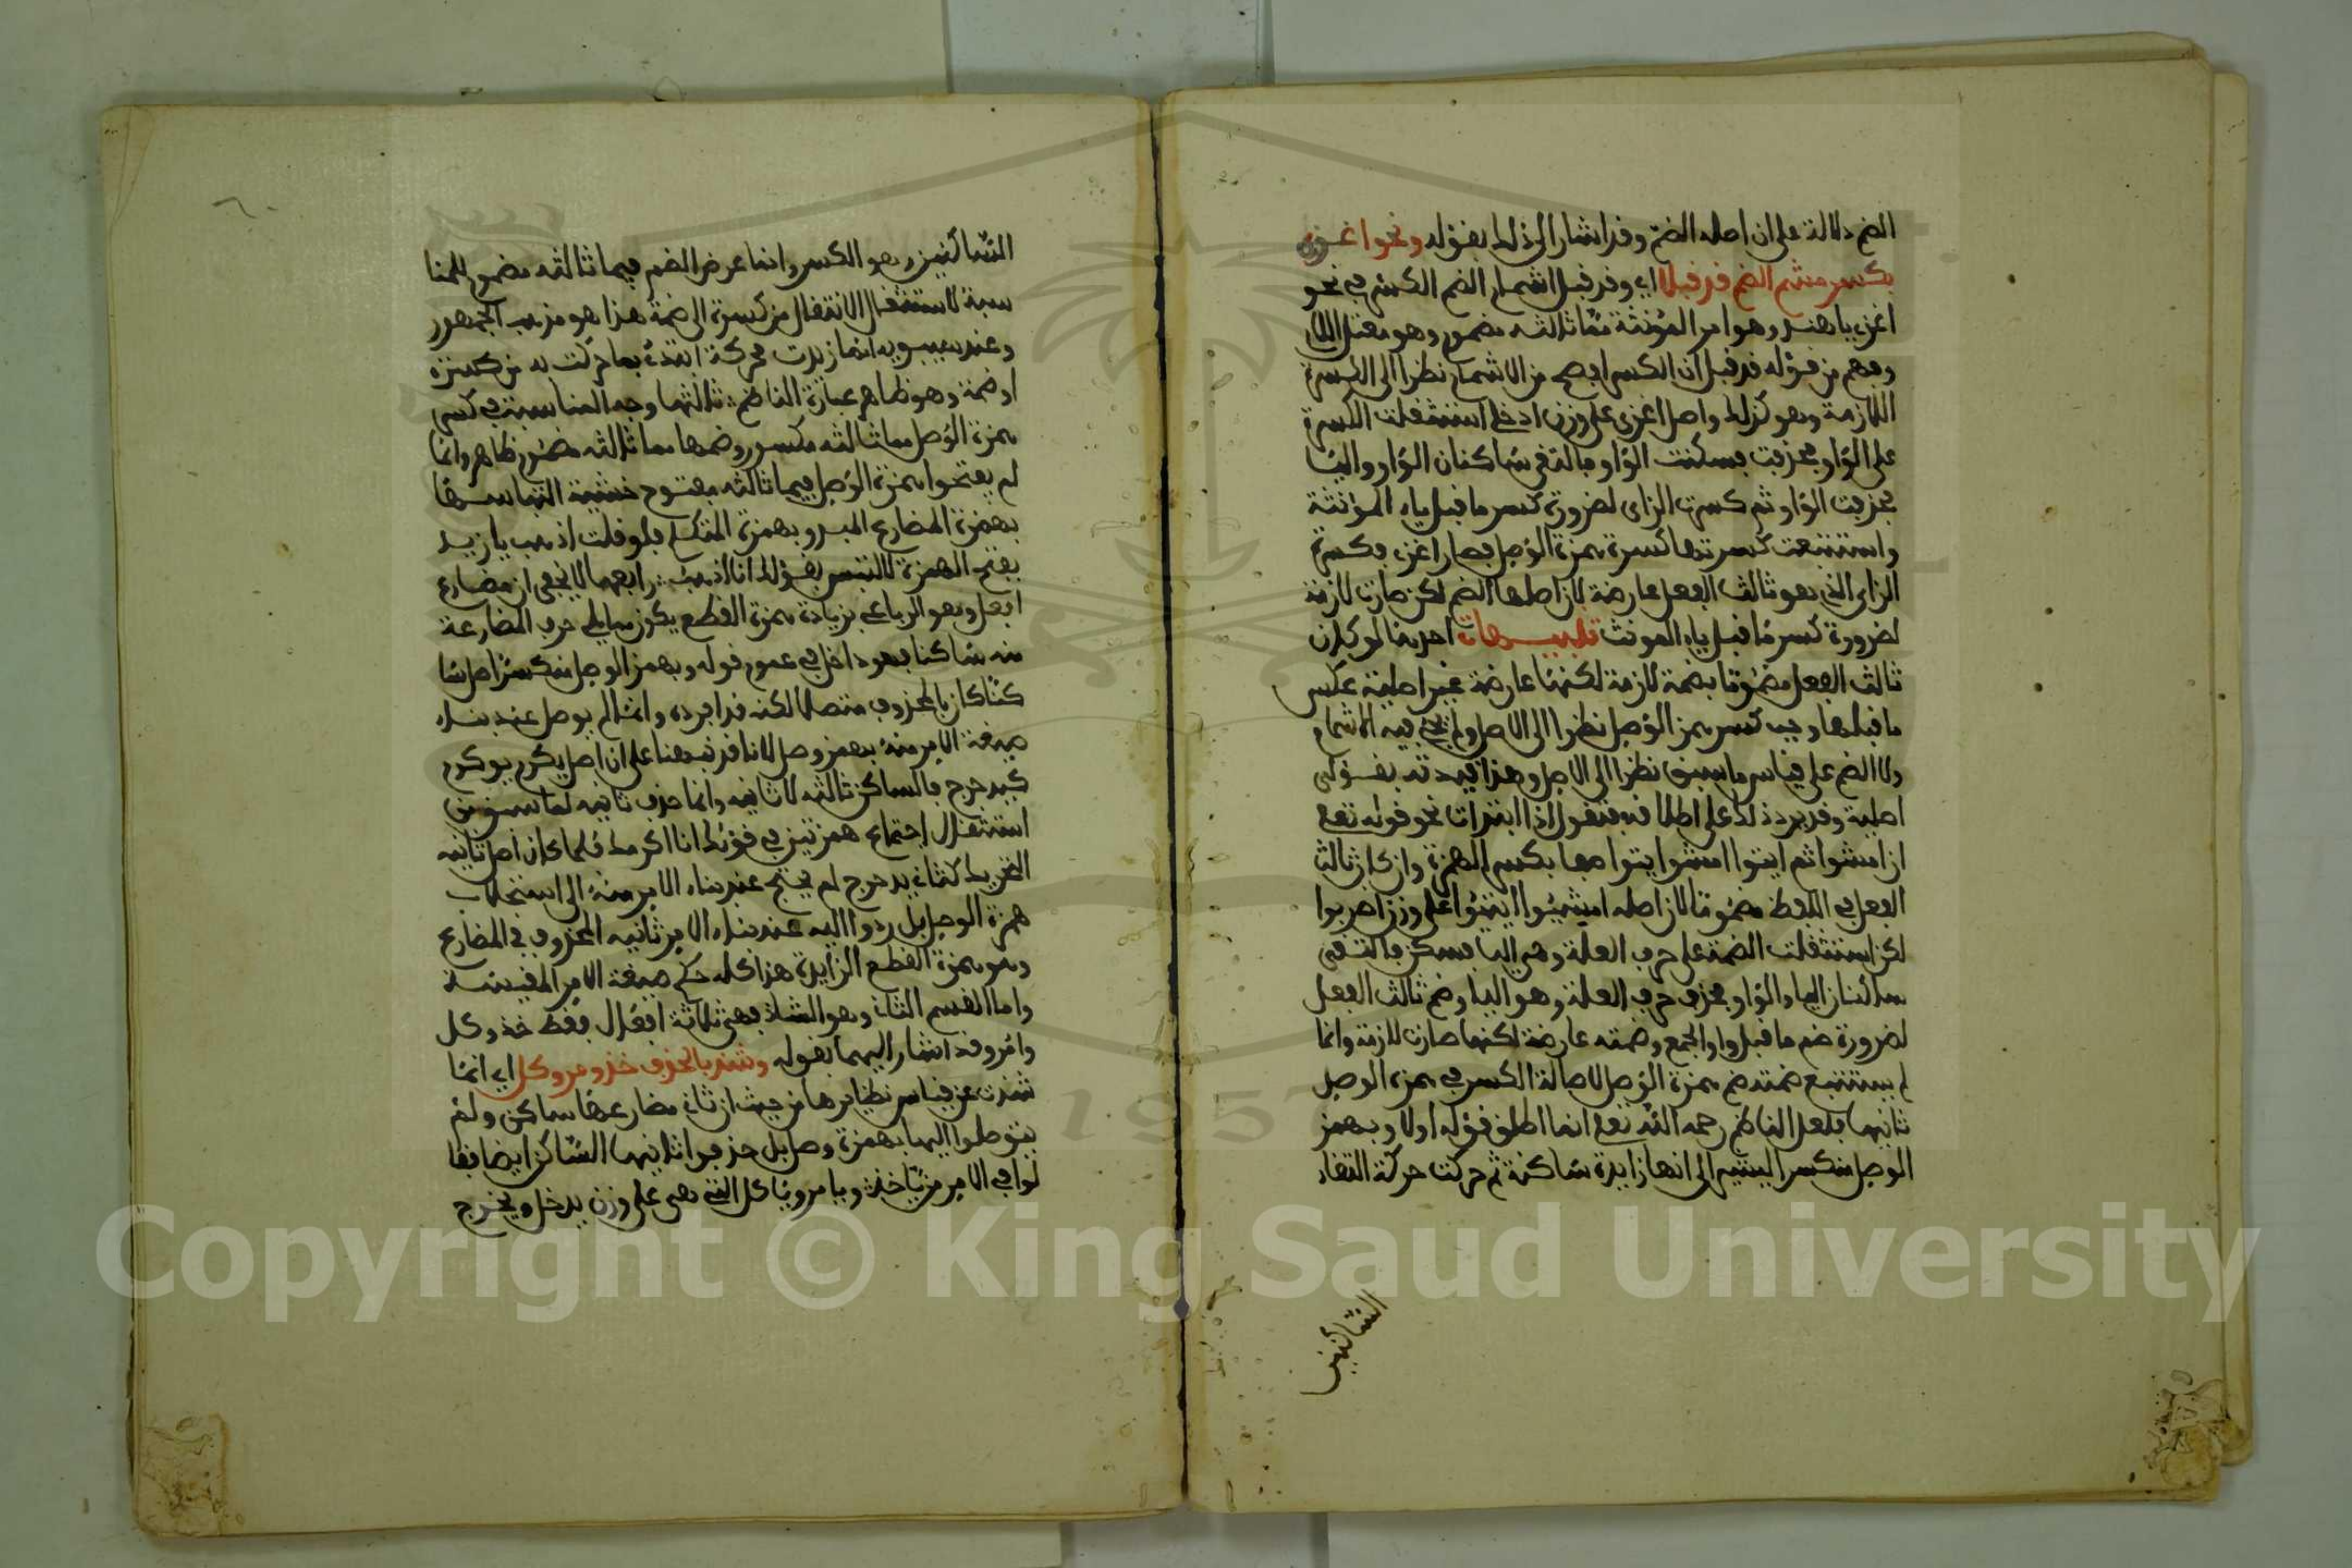 الضم دلالة على ان اصله الضم وقد اشار الى ذلك بقوله ونحو اغزي
بكسر مشم الضم قد قبلا اي وقد قبل اشمام الضم الكسر في نحو
اغزي يا هند وهو امر المؤنثة مما ثالثه مضموم وهو معتل اللام
وفهم من قوله قد قبل ان الكسر افصح من الاشمام نظرا الى الكسرة
اللازمة وهو كذلك واصل اغزي على وزن ادخلي استثقلت الكسرة
على الواو فحذفت فسكنت الواو فالتقى ساكنان الواو والياء
فحذفت الواو ثم كسرت الزاى لضرورة كسر ما قبل ياء المؤنثة
واستتبعت كسرتها كسرة همزة الوصل فصار اغزي فكسرة
الزاى الذي هو ثالث الفعل عارضة لان اصلها الضم لكن صارت لازمة
لضرورة كسر ما قبل ياء المونث تنبيهات احدها لو كان
ثالث الفعل مضموما بضمة لازمة لكنها عارضة غير اصلية عكس
ما قبلها وجب كسر همز الوصل نظرا الى الاصل ولم يجز فيه الاشمام
ولا الضم على قياس ما سبق نظرا الى الاصل وهذا قيدته بقولي
اصلية وقد يرد ذلك على اطلاقه فتقول اذا ابتدات نحو قوله تعلى
ان امشوا ثم ايتوا امشوا ايتوا معا بكسر الهمزة وان كان ثالث
الفعل في اللفظ مضموما لان اصله امشيوا ايتيوا على وزن اضربوا
لكن استثقلت الضمة على حرف العلة وهي اليا فسكن فالتقى
ساكنان الياء والواو فحذف حرف العلة وهو اليا وضم ثالث الفعل
لضرورة ضم ما قبل واو الجمع وضمته عارضة لكنها صارت لازمة وانما
لم يستتبع ضمته ضم همزة الوصل لاصالة الكسر في همزة الوصل
ثانيها فلعل الناظم رحمه الله تعلى انما اطلق قوله اولا وبهمز
الوصل منكسرا ليشير الى انها زايدة ساكنة ثم حركت حركة التقاء
الساكنين
الساكنين وهو الكسر وانما عرض الضم فيما ثالثه مضموم للمنا
سبة لاستثقال الانتقال من كسرة الى ضمة هذا هو مذهب الجمهور
وعند سيبويه انما زيدت محركة ابتداء بما حركت به من كسرة
او ضمة وهو ظاهر عبارة الناظم ثالثها وجه المناسبة في كسر
همزة الوصل مما ثالثه مكسور وضمها مما ثالثه مضموم ظاهر وانما
لم يفتحوا همزة الوصل فيما ثالثه مفتوح خشية التباسها
بهمزة المضارع المبدو بهمزة المتكلم فلو قلت اذهب يا زيد
بفتح الهمزة لالتبس بقولك انا اذهب رابعها لا يخفى ان مضارع
افعل وهو الرباعي بزيادة همزة القطع يكون ما يلي حرف المضارعة
منه ساكنا فهو داخل في عموم قوله وبهمز الوصل منكسرا صل سا
كنا كان بالمحذوف متصلا لكنه قد افرده وانما لم يوصل عند بناء
صيغة الامر منه بهمز وصل لانا قد نبهنا على ان اصل يكرم يوكرم
كيدحرج فالساكن ثالثه لا ثانيه وانما حذف ثانيه لما سبق من
استثقال اجتماع همزتين في قولك انا اكرمك فلما كان اصل ثانيه
التحريك كثاني يدحرج لم يحتج عند بناء الامر منه الى استجلاب
همزة الوصل بل ردوا اليه عند بناء الامر ثانيه المحذوف في المضارع
وهو همزة القطع الزايدة هذا كله حكم صيغة الامر المقيسة
واما القسم الثاني وهو الشاذ فهي ثلاثة افعال فقط خذ وكل
وامر وقد اشار اليها بقوله وشذ بالحذف خذ ومر وكل اي انما
شذت عن قياس نظايرها من حيث ان ثاني مضارعها ساكن ولم
يتوصلوا اليها بهمزة وصل بل حذفوا ثانيها الساكن ايضا فقا
لوا في الامر من ياخذ ويامر وياكل التي هي على وزن يدخل ويخرج